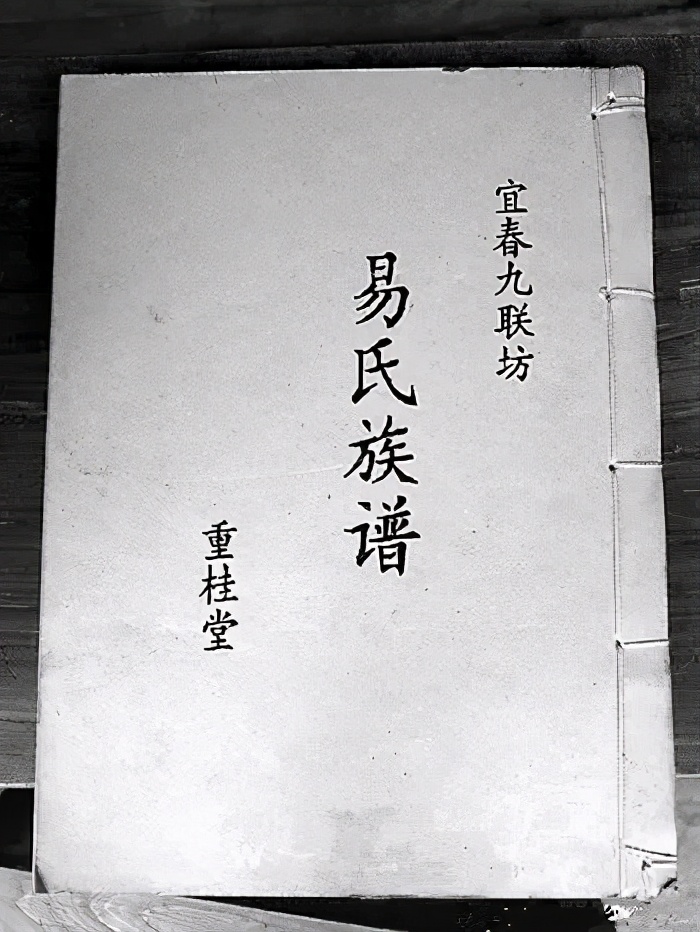 宜春九联坊
易氏族谱
重桂堂